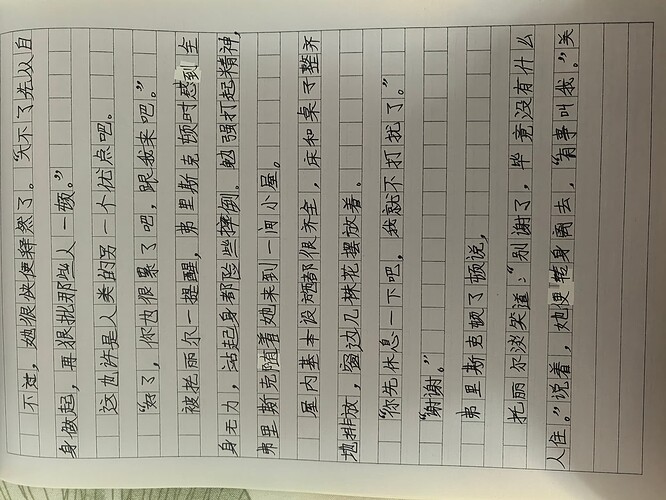 不过，她很快便释然了。“大不了先从自
身做起，再狠批那些人一顿。”
这也许是人类的另一个优点吧。
“好了，你也很累了吧，跟我来吧。”
被托丽尔一提醒，弗里斯克顿时感到全
身无力，站起身都险些摔倒。勉强打起精神，
弗里斯克随着她来到一间小屋。
屋内基本设施都很齐全，床和桌子整齐
地排放，窗边几株花摆放着。
“你先休息一下吧，我就不打扰了。”
“谢谢。”
弗里斯克顿了顿说，
托丽尔淡笑道：“别谢了，毕竟没有什么
人住。”说着，她便转身离去，“有事叫我。”关